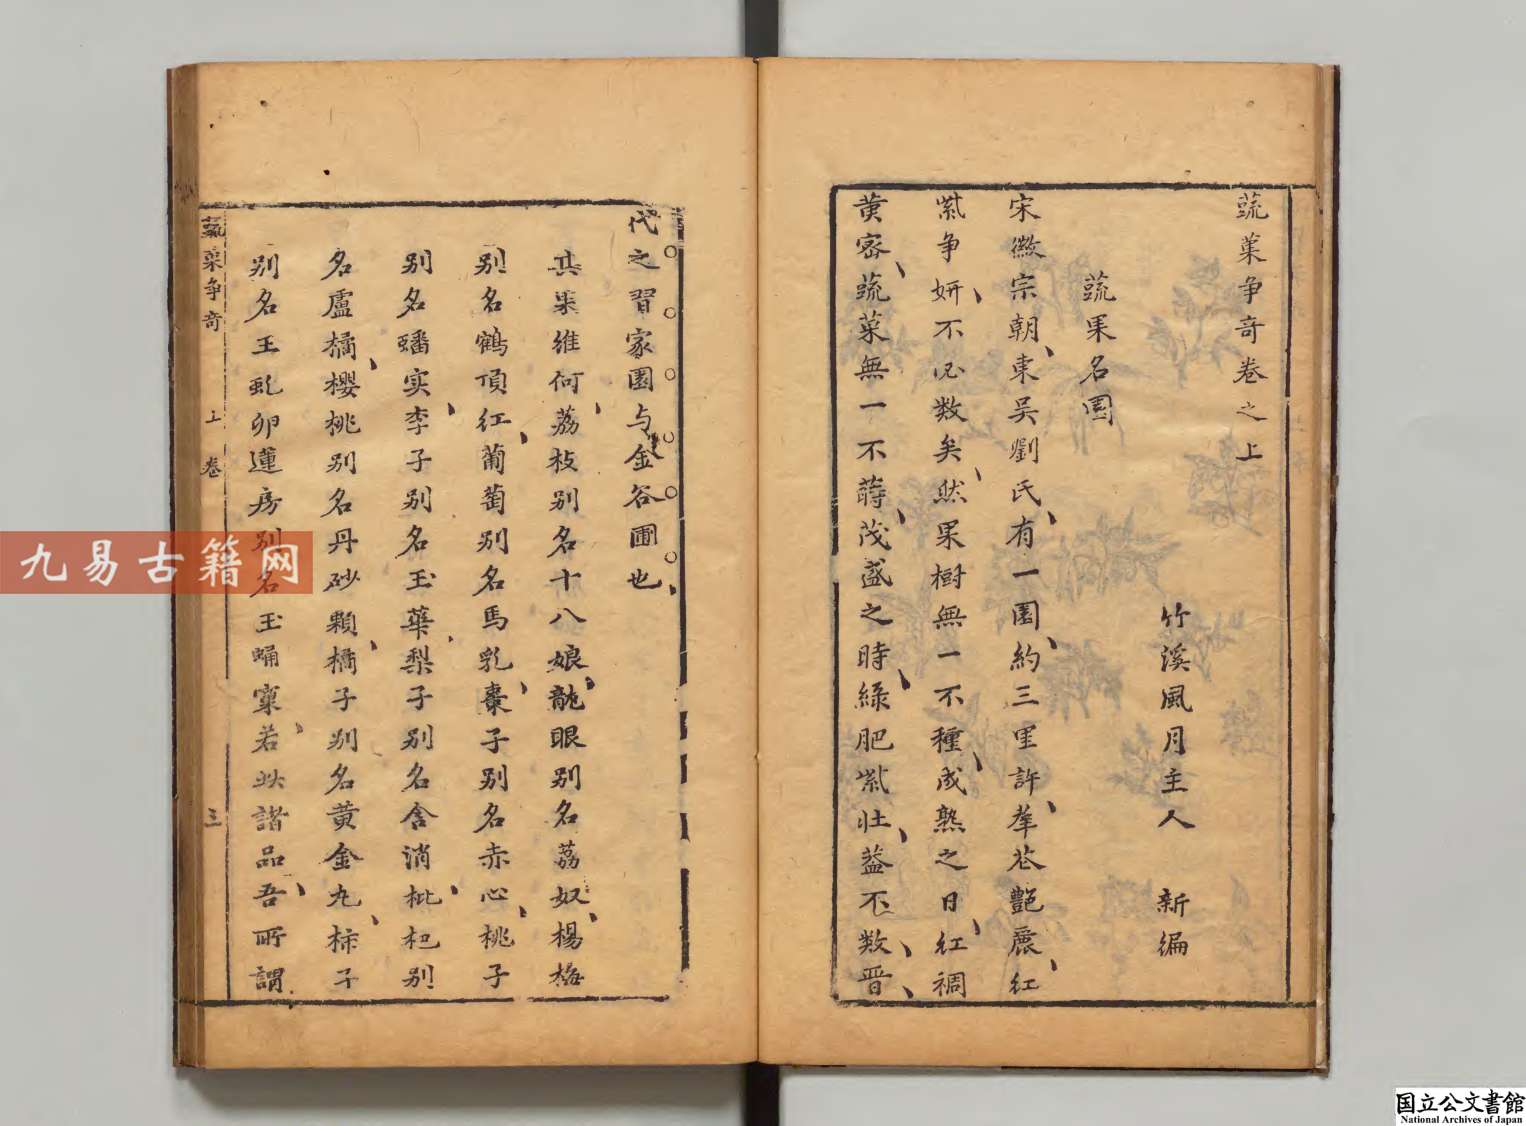 蔬菓争奇卷之上
竹溪風月主人 新編
蔬果名園
宋徽宗朝東吴劉氏有一園約三里許羣芲艷麗紅
紫争妍不必数矣然果樹無一不種成熟之日紅裯
黄密蔬菜無一不蒔茂盛之時緑肥紫壮葢不数晋
代之習家園与金谷圃也
其果維何荔枝别名十八娘龍眼别名荔奴楊梅
别名鶴頂红葡萄别名馬乳棗子别名赤心桃子
别名蟠实李子别名玉華梨子别名含消枇杷别
名盧橘櫻桃别名丹砂顆橘子别名黄金丸柿子
别名王虬卵蓮房别名玉蛹窠若此諸品吾所謂
蔬菓争奇 上卷 三
九易古籍网
国立公文書館
National Archives of Japan